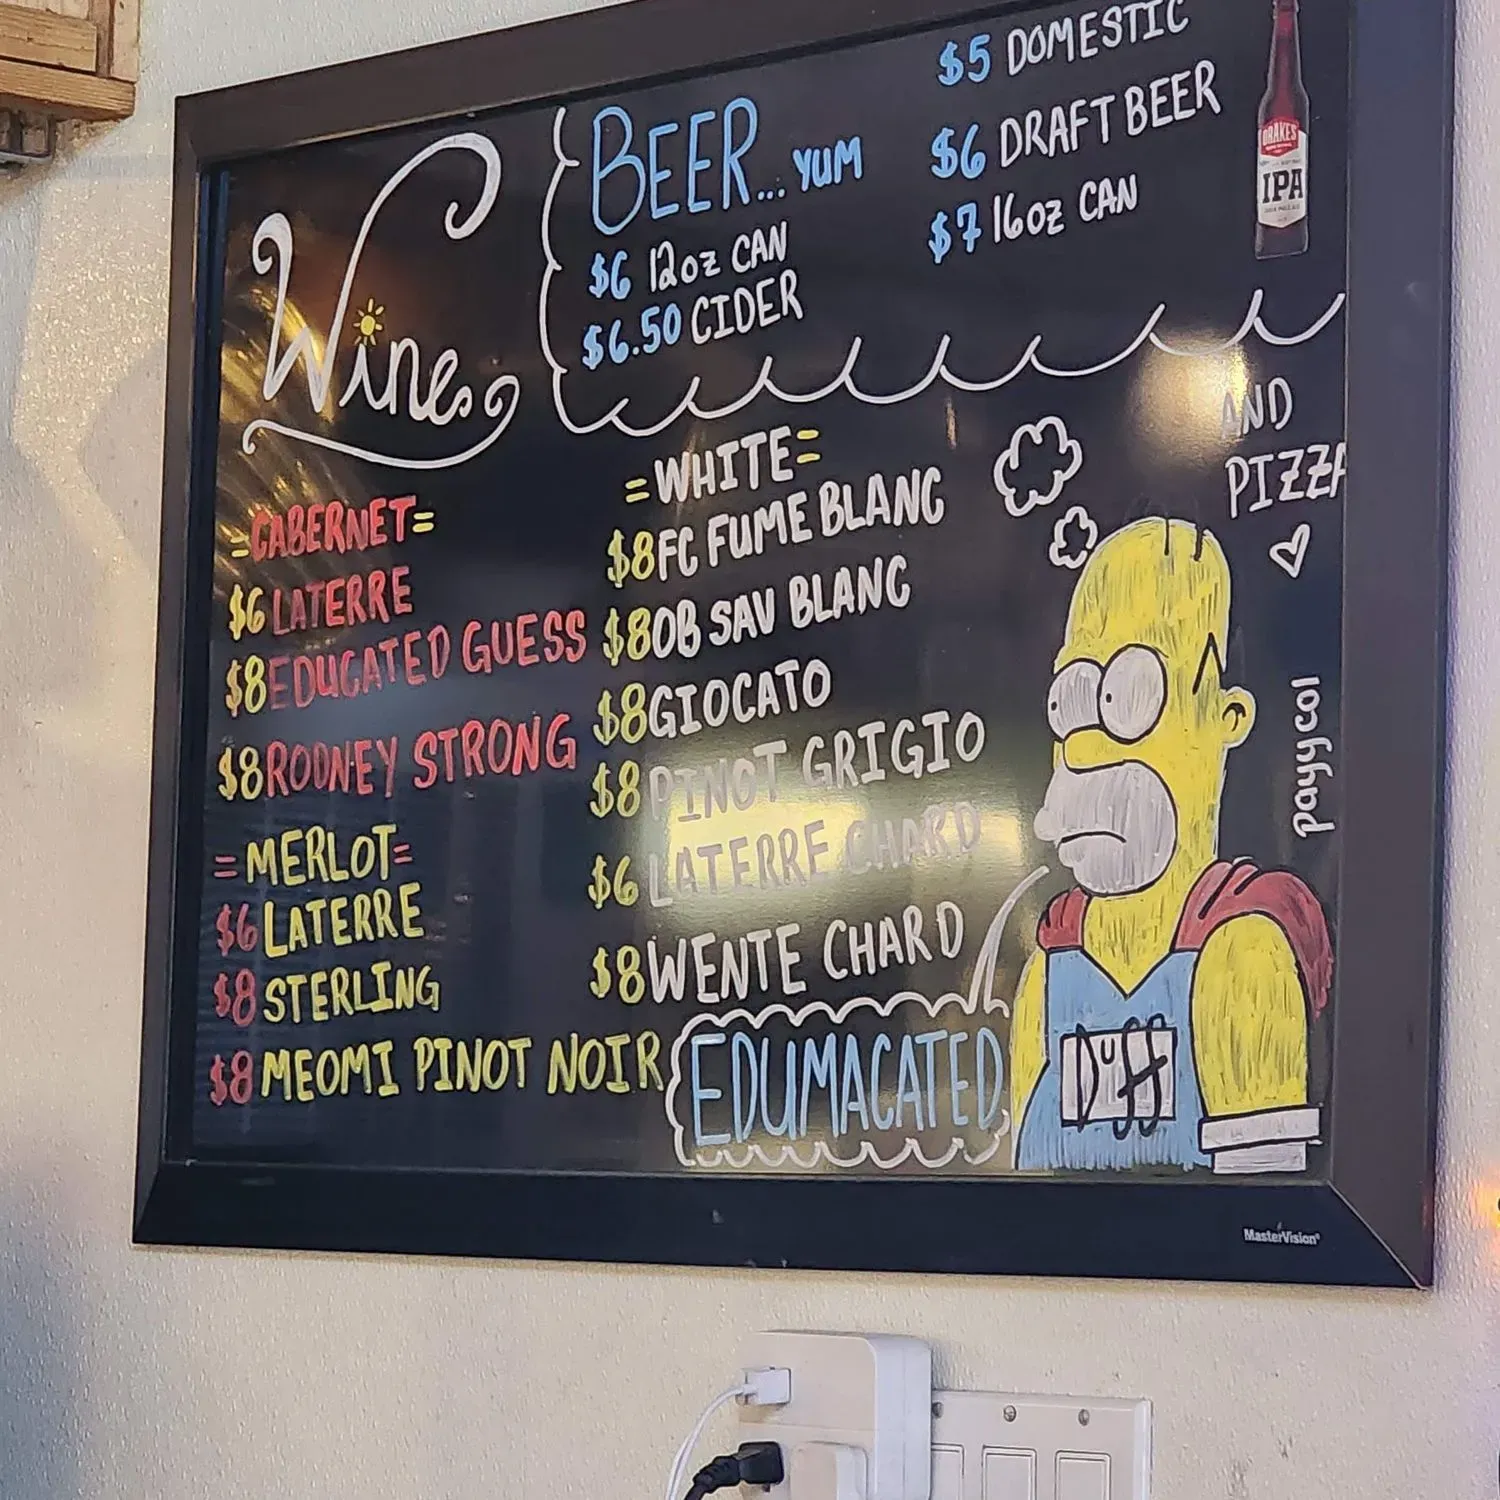 Wine
BEER... YUM
$6 12oz CAN
$6.50 CIDER
$5 DOMESTIC
$6 DRAFT BEER
$7 16oz CAN
DRAKES
IPA
=CABERNET=
$6 LATERRE
$8 EDUCATED GUESS
$8 RODNEY STRONG
=MERLOT=
$6 LATERRE
$8 STERLING
$8 MEOMI PINOT NOIR
=WHITE=
$8 FC FUME BLANC
$8 OB SAV BLANC
$8 GIOCATO
$8 PINOT GRIGIO
$6 LATERRE CHARD
$8 WENTE CHARD
EDUMACATED
AND
PIZZA
payycol
DUFF
MasterVision